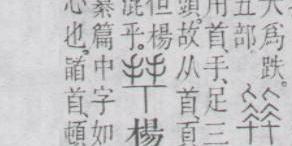 大爲跌。
五部
用首手、足三
頭。故从首、頁
但楊
混乎。
楊
纂篇中字如
心也。䭫首、頓